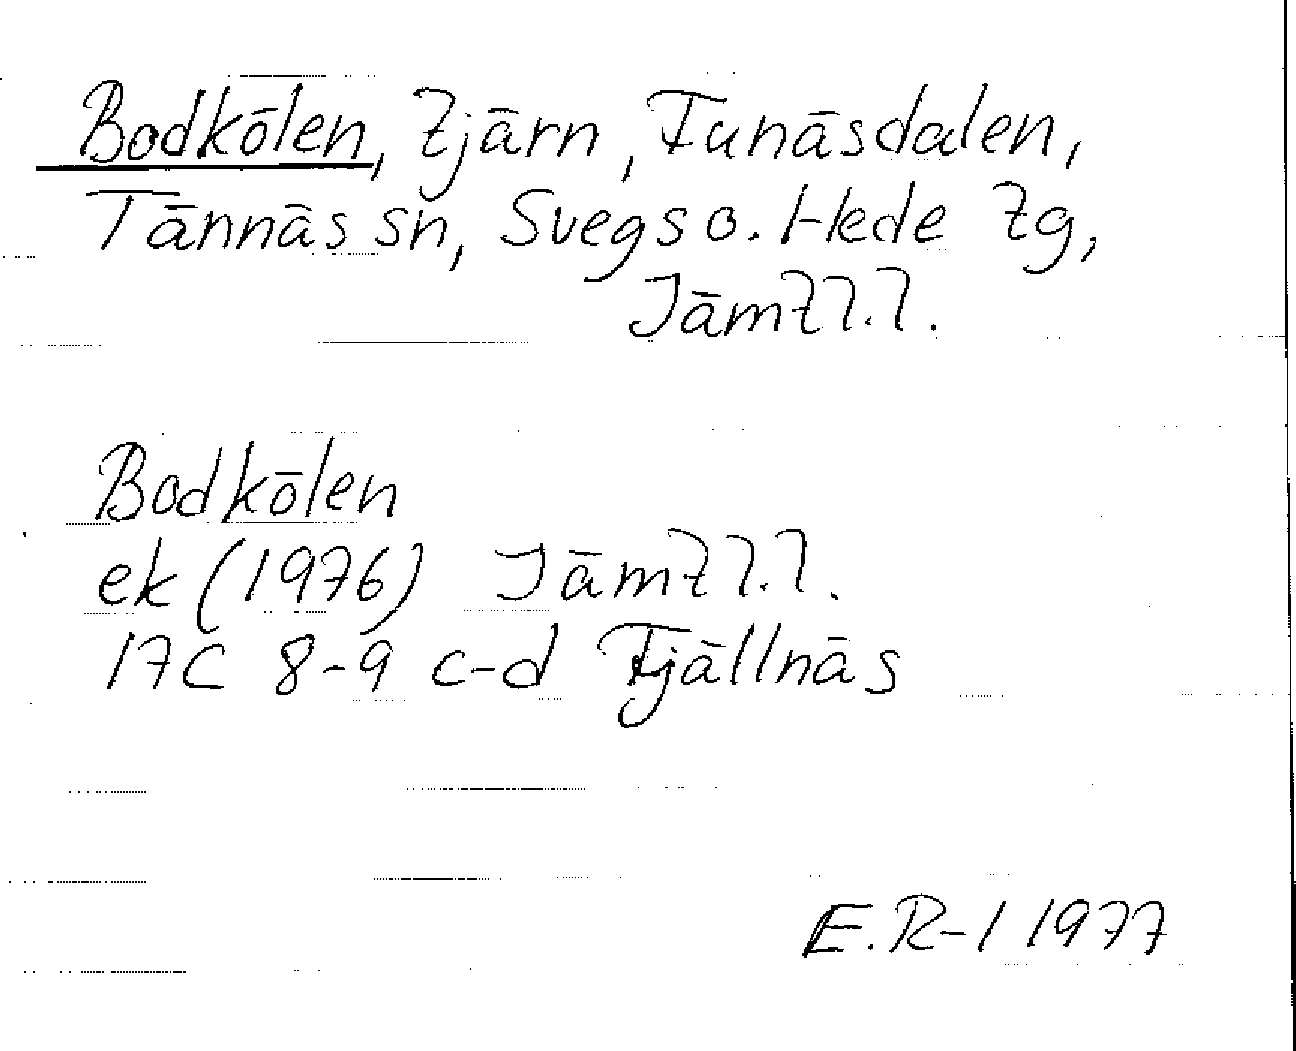 Bodkölen, tjärn, Funäsdalen,
Tännäs sn, Svegs o. Hede tg,
Jämtl.l.
Bodkölen
ek (1976) Jämtl.l.
17C 8-9 c-d Fjällnäs
E.R-l 1977